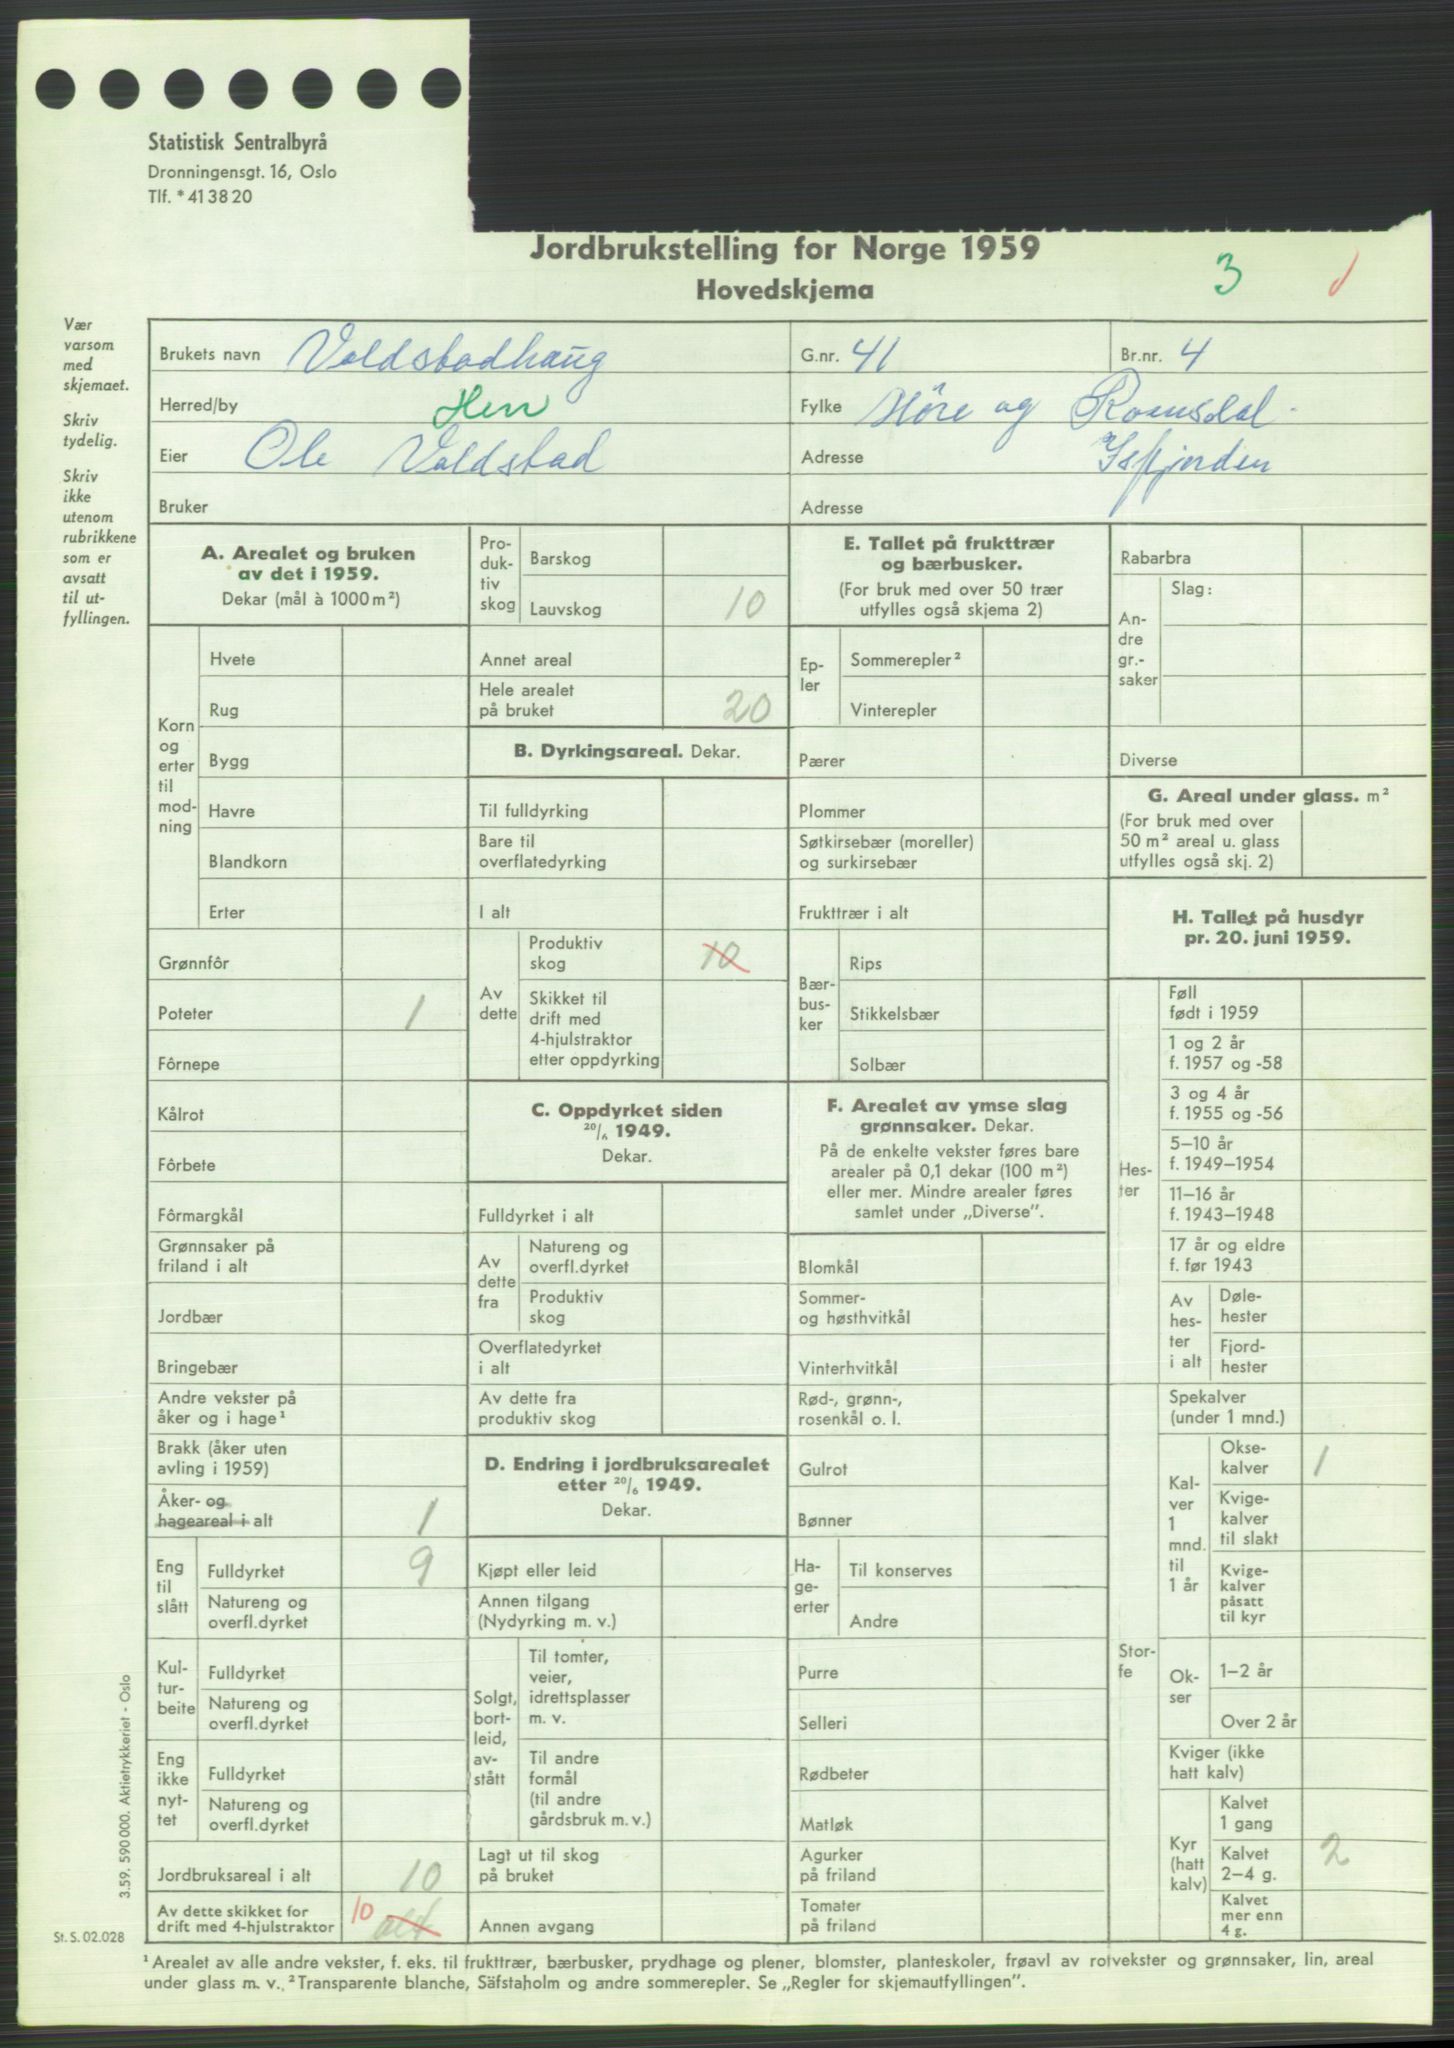 Statistisk Sentralbyrå
Dronningensgt. 16, Oslo
Tlf. * 41 38 20
Jordbrukstelling for Norge 1959
Hovedskjema
3
Vær
varsom
med
skjemaet.
Skriv
tydelig.
Skriv
ikke
utenom
rubrikkene
som er
avsatt
til ut-
fyllingen.
Brukets navn Voldstadhaug
G.nr. 41
Br.nr. 4
Herred/by Hen
Fylke Møre og Romsdal
Eier Ole Voldstad
Adresse Isfjorden
Bruker
Adresse
A. Arealet og bruken
av det i 1959.
Dekar (mål à 1000 m²)
Korn
og
erter
til
mod-
ning
Hvete
Rug
Bygg
Havre
Blandkorn
Erter
Grønnfôr
Poteter 1
Fôrnepe
Kålrot
Fôrbete
Fôrmargkål
Grønnsaker på
friland i alt
Jordbær
Bringebær
Andre vekster på
åker og i hage¹
Brakk (åker uten
avling i 1959)
Åker- og
hageareal i alt 1
Eng
til
slått
Fulldyrket 9
Natureng og
overfl.dyrket
Kul-
tur-
beite
Fulldyrket
Natureng og
overfl.dyrket
Eng
ikke
nyt-
tet
Fulldyrket
Natureng og
overfl.dyrket
Jordbruksareal i alt 10
Av dette skikket for
drift med 4-hjulstraktor 10 alt
Pro-
duk-
tiv
skog
Barskog
Lauvskog 10
Annet areal
Hele arealet
på bruket 20
B. Dyrkingsareal. Dekar.
Til fulldyrking
Bare til
overflatedyrking
I alt
Av
dette
Produktiv
skog 10
Skikket til
drift med
4-hjulstraktor
etter oppdyrking
C. Oppdyrket siden
20/6 1949.
Dekar.
Fulldyrket i alt
Av
dette
fra
Natureng og
overfl.dyrket
Produktiv
skog
Overflatedyrket
i alt
Av dette fra
produktiv skog
D. Endring i jordbruksarealet
etter 20/6 1949.
Dekar.
Kjøpt eller leid
Annen tilgang
(Nydyrking m. v.)
Solgt,
bort-
leid,
av-
stått
Til tomter,
veier,
idrettsplasser
m. v.
Til andre
formål
(til andre
gårdsbruk m. v.)
Lagt ut til skog
på bruket
Annen avgang
E. Tallet på frukttrær
og bærbusker.
(For bruk med over 50 trær
utfylles også skjema 2)
Ep-
ler
Sommerepler²
Vinterepler
Pærer
Plommer
Søtkirsebær (moreller)
og surkirsebær
Frukttrær i alt
Bær-
bus-
ker
Rips
Stikkelsbær
Solbær
F. Arealet av ymse slag
grønnsaker. Dekar.
På de enkelte vekster føres bare
arealer på 0,1 dekar (100 m²)
eller mer. Mindre arealer føres
samlet under „Diverse”.
Blomkål
Sommer-
og høsthvitkål
Vinterhvitkål
Rød-, grønn-,
rosenkål o. l.
Gulrot
Bønner
Ha-
ge-
erter
Til konserves
Andre
Purre
Selleri
Rødbeter
Matløk
Agurker
på friland
Tomater
på friland
Rabarbra
An-
dre
gr.-
saker
Slag:
Diverse
G. Areal under glass. m²
(For bruk med over
50 m² areal u. glass
utfylles også skj. 2)
H. Tallet på husdyr
pr. 20. juni 1959.
Hes-
ter
Føll
født i 1959
1 og 2 år
f. 1957 og -58
3 og 4 år
f. 1955 og -56
5–10 år
f. 1949–1954
11–16 år
f. 1943–1948
17 år og eldre
f. før 1943
Av
hes-
ter
i alt
Døle-
hester
Fjord-
hester
Stor-
fe
Spekalver
(under 1 mnd.)
Kal-
ver
1
mnd.
til
1 år
Okse-
kalver 1
Kvige-
kalver
til slakt
Kvige-
kalver
påsatt
til kyr
Ok-
ser
1–2 år
Over 2 år
Kviger (ikke
hatt kalv)
Kyr
(hatt
kalv)
Kalvet
1 gang
Kalvet
2–4 g. 2
Kalvet
mer enn
4 g.
3.59. 590 000. Aktietrykkeriet - Oslo
St. S. 02.028
¹ Arealet av alle andre vekster, f. eks. til frukttrær, bærbusker, prydhage og plener, blomster, planteskoler, frøavl av rotvekster og grønnsaker, lin, areal
under glass m. v., ² Transparente blanche, Säfstaholm og andre sommerepler. Se „Regler for skjemautfyllingen”.